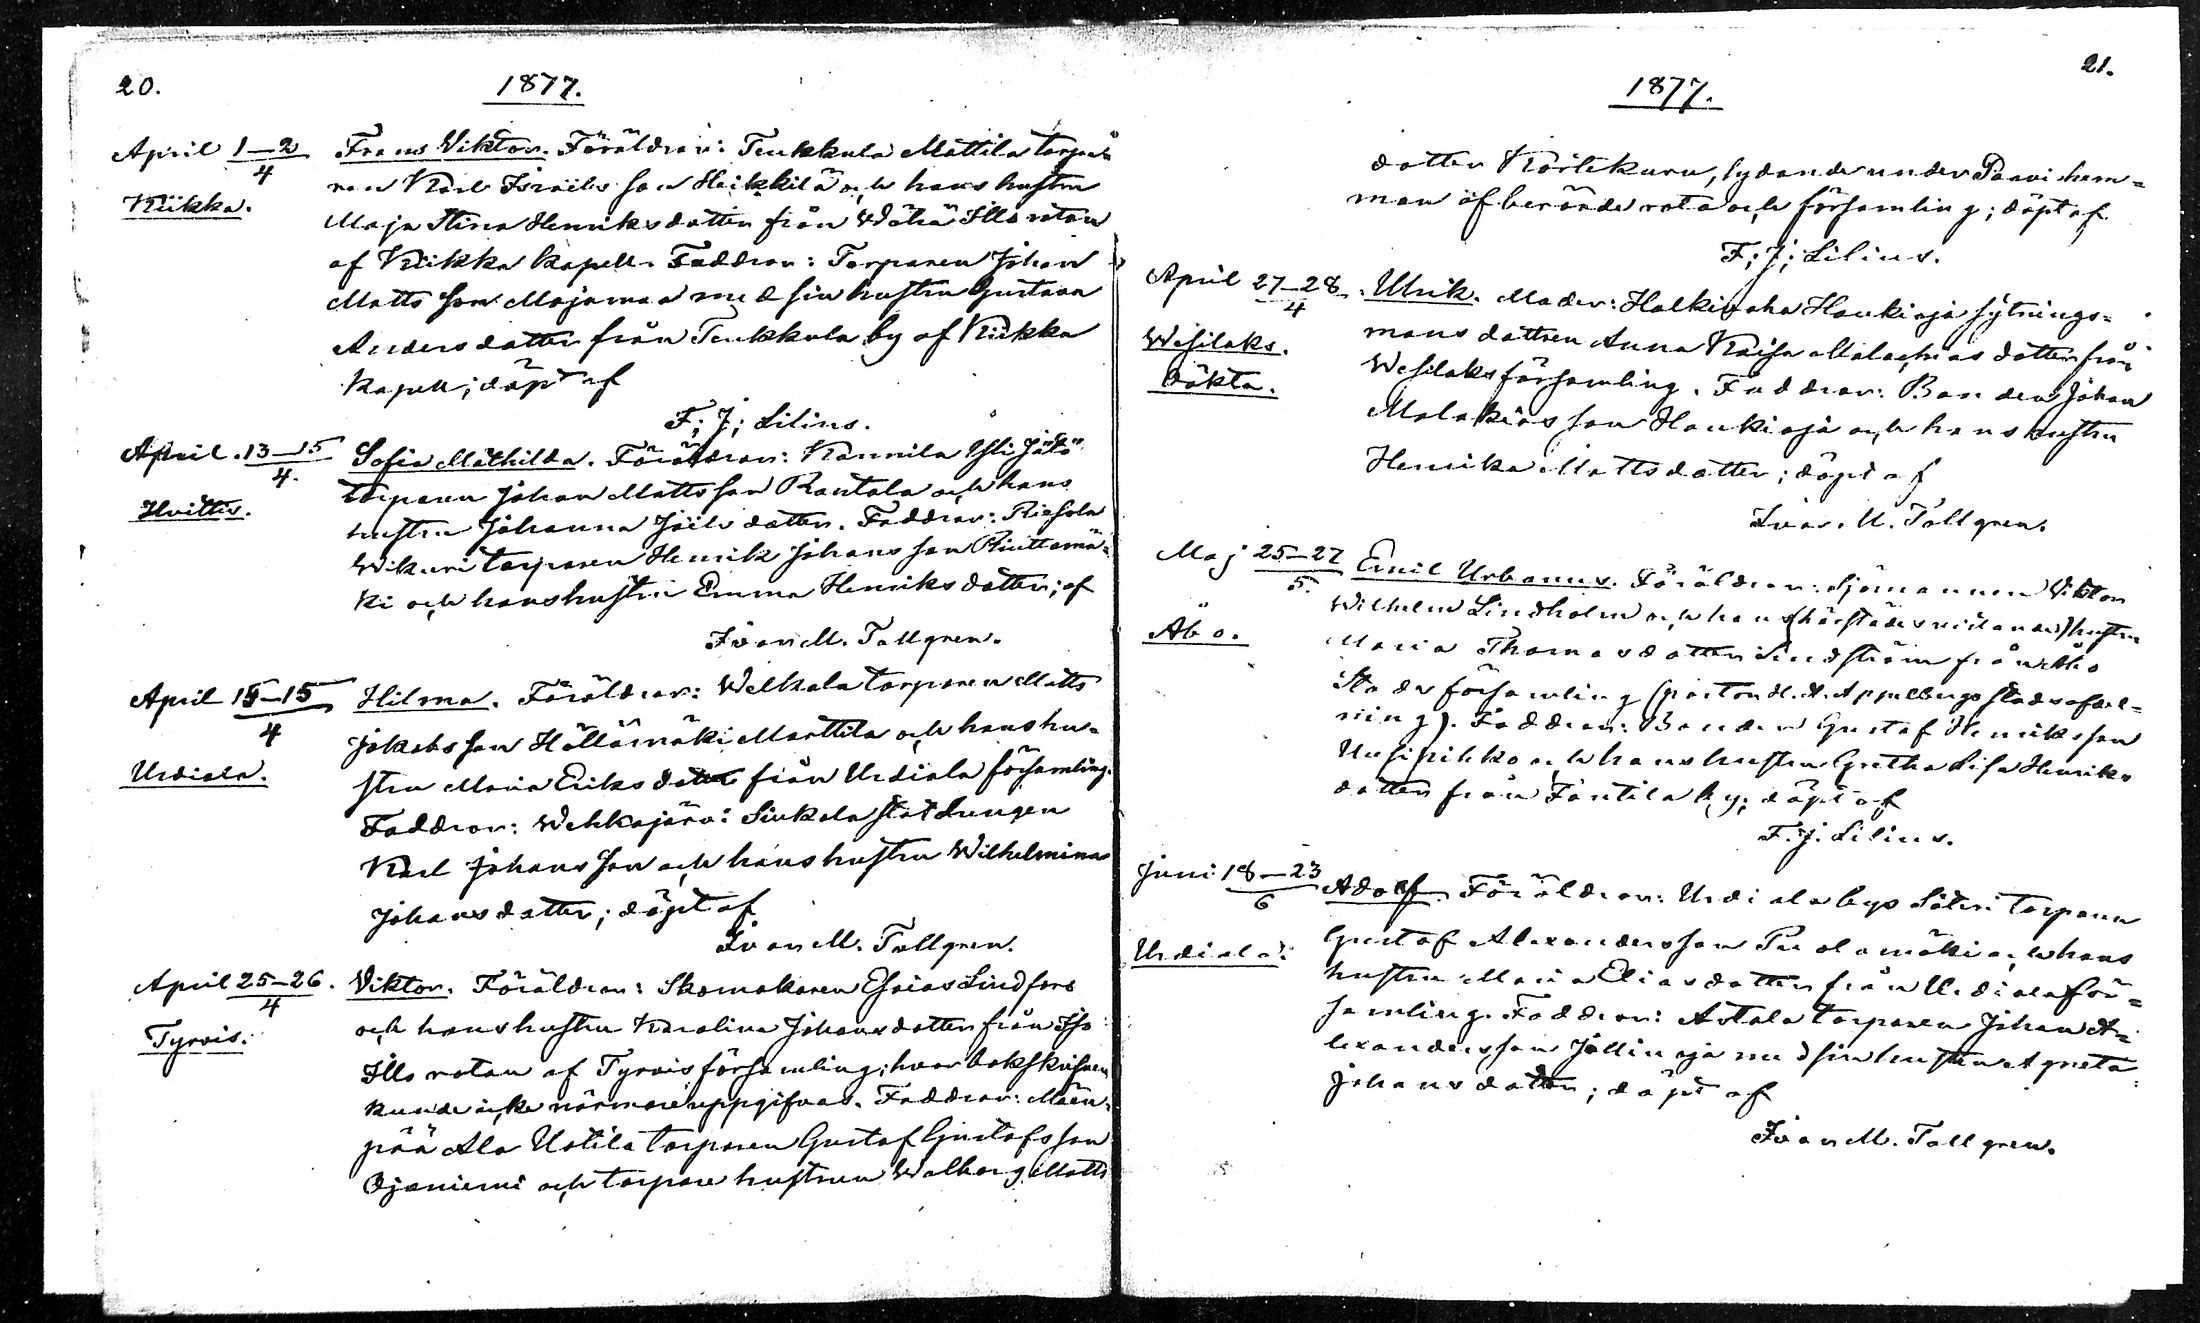 20.
1877.
April 1–2/4
Kiikka.
Frans Viktor. Föräldrar: Teukkula Mattila torpa-
ren Karl Israëls son Heikkilä och hans hustru
Maja Stina Henriksdotter från Wähä Illo rotan
af Kiikka Kapell. Faddrar: Torparen Johan
Matts son Majamaa med sin hustru Gustava
Andersdotter från Teukkula by af Kiikka
Kapell; döpt af
F; J; Lilius.
April 13–15/4.
Huittis.
Sofia Mathilda. Föräldrar: Kannila Yli Jätö
torparen Johan Mattsson Rantala och hans
hustru Johanna Joëlsdotter. Faddrar: Riesola
Wikari torparen Henrik Johansson Riuttamä-
ki och hans hustru Emma Henriksdotter; af
Ivar M. Tallgren.
April 15–15/4
Urdiala.
Hilma. Föräldrar: Welkala torparen Matts
Jakobsson Hällämäki Marttila och hans hu-
stru Maria Eriksdotter från Urdiala församling.
Faddrar: Wehkajärvi Sinkala statdrengen
Karl Johansson och hans hustru Wilhelmina
Johansdotter; döpt af
Ivar M. Tallgren.
April 25–26./4
Tyrvis.
Viktor. Föräldrar: Skomakaren Esaias Lindfors
och hans hustru Karolina Johansdotter från Iso
Illo rotan af Tyrvis församling; hvar bokskrifven
kunde icke närmare uppgifvas. Faddrar: Mään-
pää Ala Uotila torparen Gustaf Gustafsson
Ojaniemi och torpare hustrun Walborg Matts
21.
1877.
dotter Körtekuru, lydande under Paavi hem-
man af berörde rota och församling; döpt af
F; J; Lilius.
April 27–28/4
Wesilaks.
Oäkta.
Ulrik. Moder: Halkivaha Haukioja sytnings-
mans dottren Anna Kaisa Malachiasdotter från
Wesilaks församling. Faddrar: Bonden Johan
Malakiasson Haukioja och hans hustru
Henrika Mattsdotter; döpt af
Ivar M. Tallgren.
Maj 25–27/5.
Åbo.
Emil Urbanus. Föräldrar: Sjömannen Viktor
Wilhelm Lindholm och hans (härstädes vistande) hustru
Maria Thomasdotter Lindström från Åbo
Stads församling (pastor H. A. Appelbergs stadsafdel-
ning). Faddrar: Bonden Gustaf Henriksson
Uusipihko och hans hustru Gretha Lisa Henriks
dotter från Fantila by; döpt af
F. J. Lilius.
Juni 18–23/6
Urdiala.
Adolf. Föräldrar: Urdiala bys Säteri torparen
Gustaf Alexandersson Puolamäki och hans
hustru Maria Eliasdotter från Urdiala för-
samling. Faddrar: Astala torparen Johan A-
lexandersson Jällinoja med sin hustru Agneta
Johansdotter; döpt af
Ivar M. Tallgren.